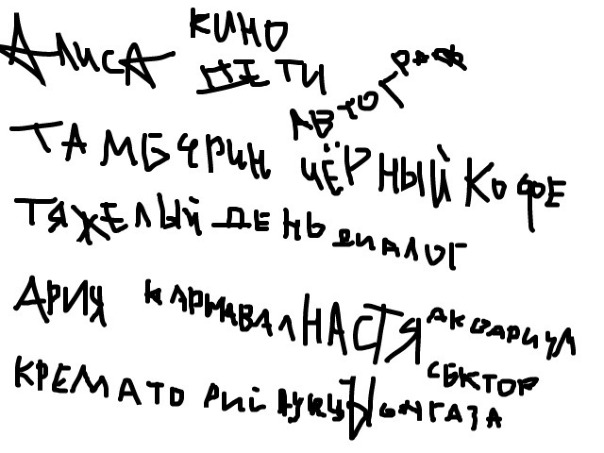 Алиса КИНО
ДЕТИ
АВТОГРАФ
ТАМБУРИН ЧЁРНЫЙ КОФЕ
ТЯЖЕЛЫЙ ДЕНЬ ДИАЛОГ
АРИЯ КАРНАВАЛ НАСТЯ АКВАРИУМ
СЕКТОР ГАЗА
КРЕМАТОРИЙ